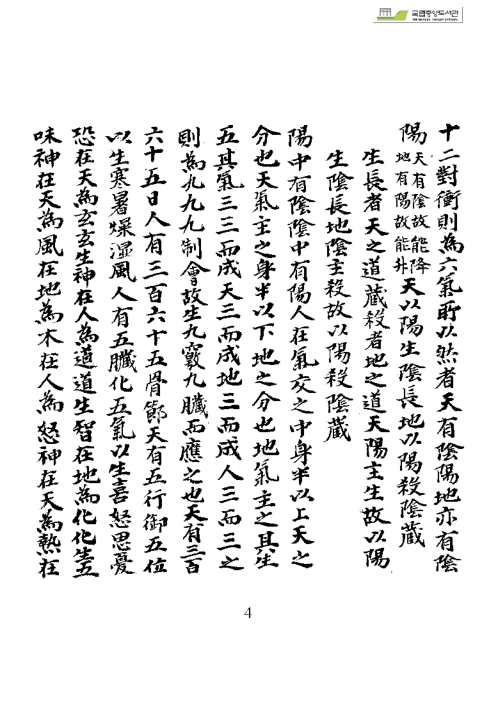 국립중앙도서관
十二對衝則為六氣所以然者天有陰陽地亦有陰
陽天有陰故能降地有陽故能升天以陽生陰長地以陽殺陰藏
生長者天之道藏殺者地之道天陽主生故以陽
生陰長地陰主殺故以陽殺陰藏
陽中有陰陰中有陽人在氣交之中身半以上天之
分也天氣主之身半以下地之分也地氣主之其生
五其氣三三而成天三而成地三而成人三而三之
則為九九九制會故生九竅九臟而應之也天有三百
六十五日人有三百六十五骨節天有五行御五位
以生寒暑燥湿風人有五臟化五氣以生喜怒思憂
恐在天為玄玄生神在人為道道生智在地為化化生五
味神在天為風在地為木在人為怒神在天為熱在
4